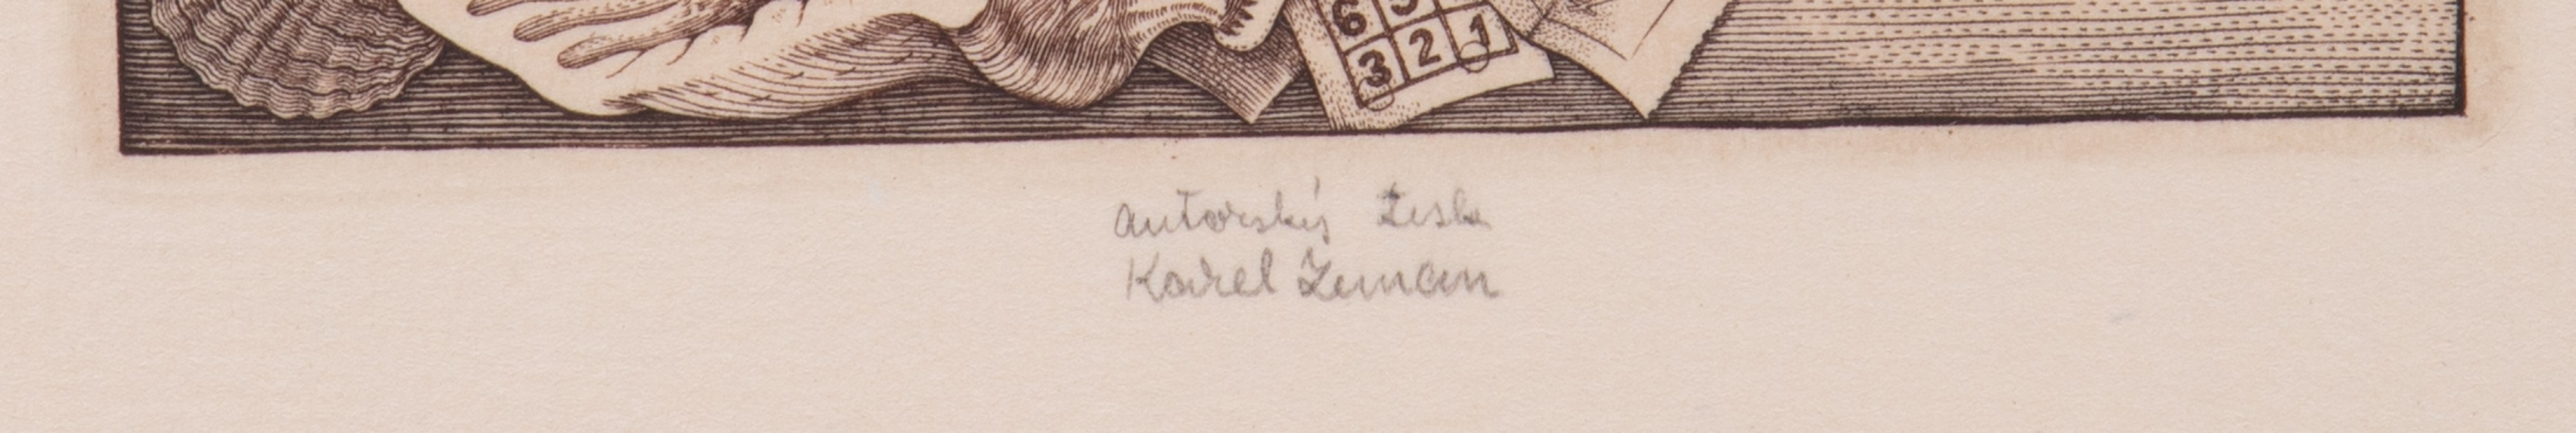 6 5
3 2 1
autorský tisk
Karel Zeman